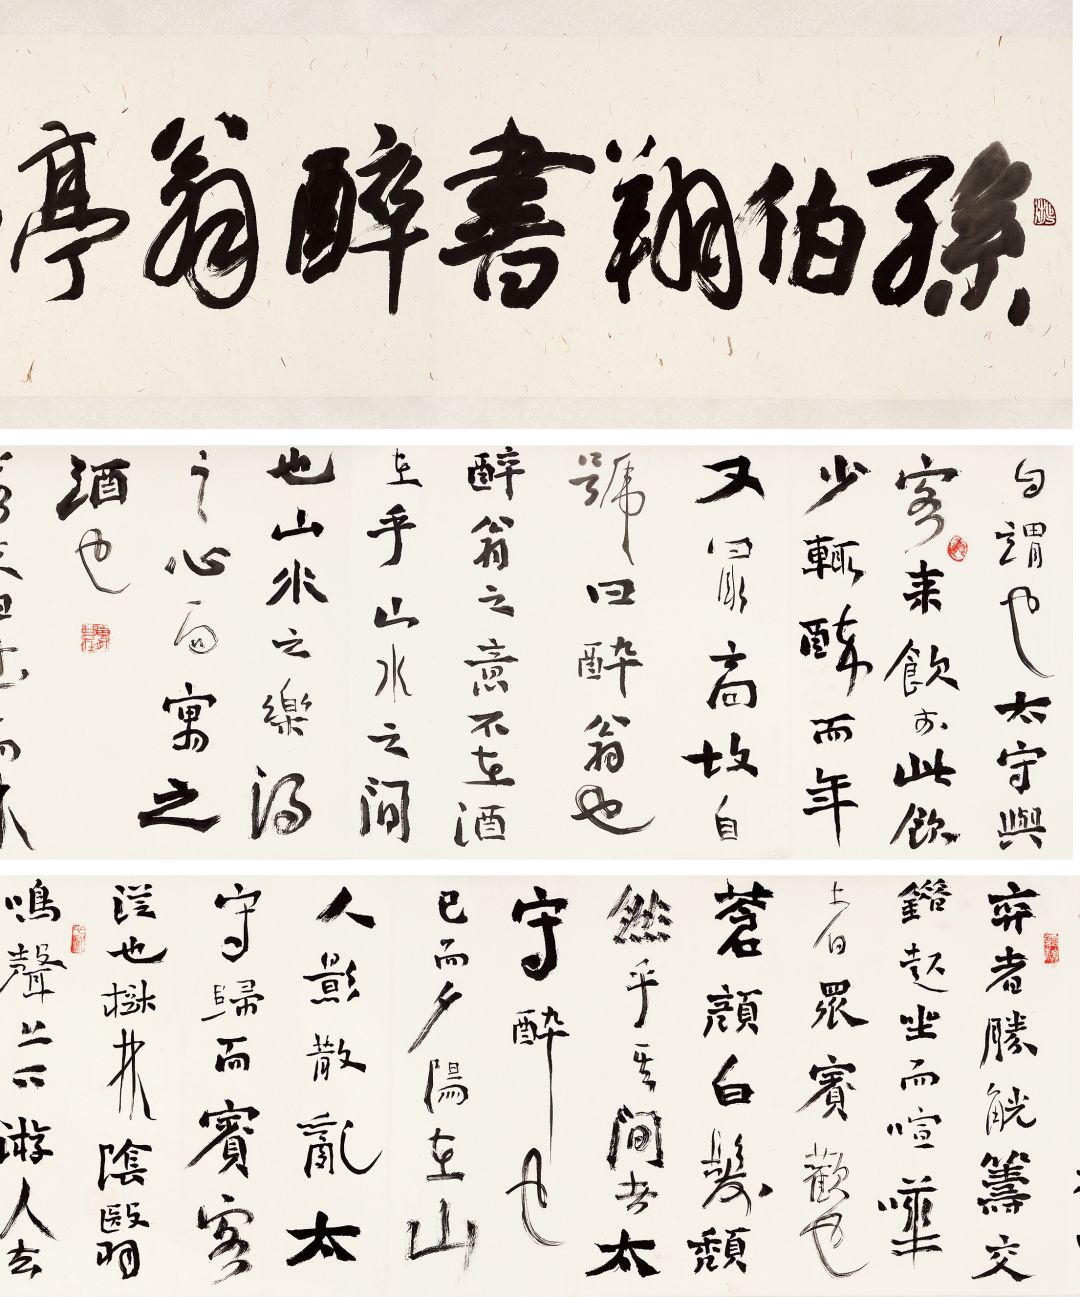 孫伯翔書醉翁亭
自謂也太守與
客來飲於此飲
少輒醉而年
又最高故自
號曰醉翁也
醉翁之意不在酒
在乎山水之間
也山水之樂得
之心而寓之
酒也
弈者勝觥籌交
錯起坐而喧嘩
者眾賓歡也
蒼顏白髮頹
然乎其間者太
守醉也
已而夕陽在山
人影散亂太
守歸而賓客
從也樹林陰翳
鳴聲上下遊人去